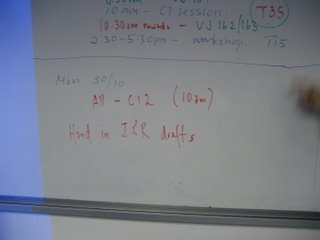 10am - C7 SESSION. T35
10.30am onwards - VJ 162/163
2.30-5.30pm - workshop. T15
Mon 30/10
. All - C12 (10am)
Hand in I&R drafts